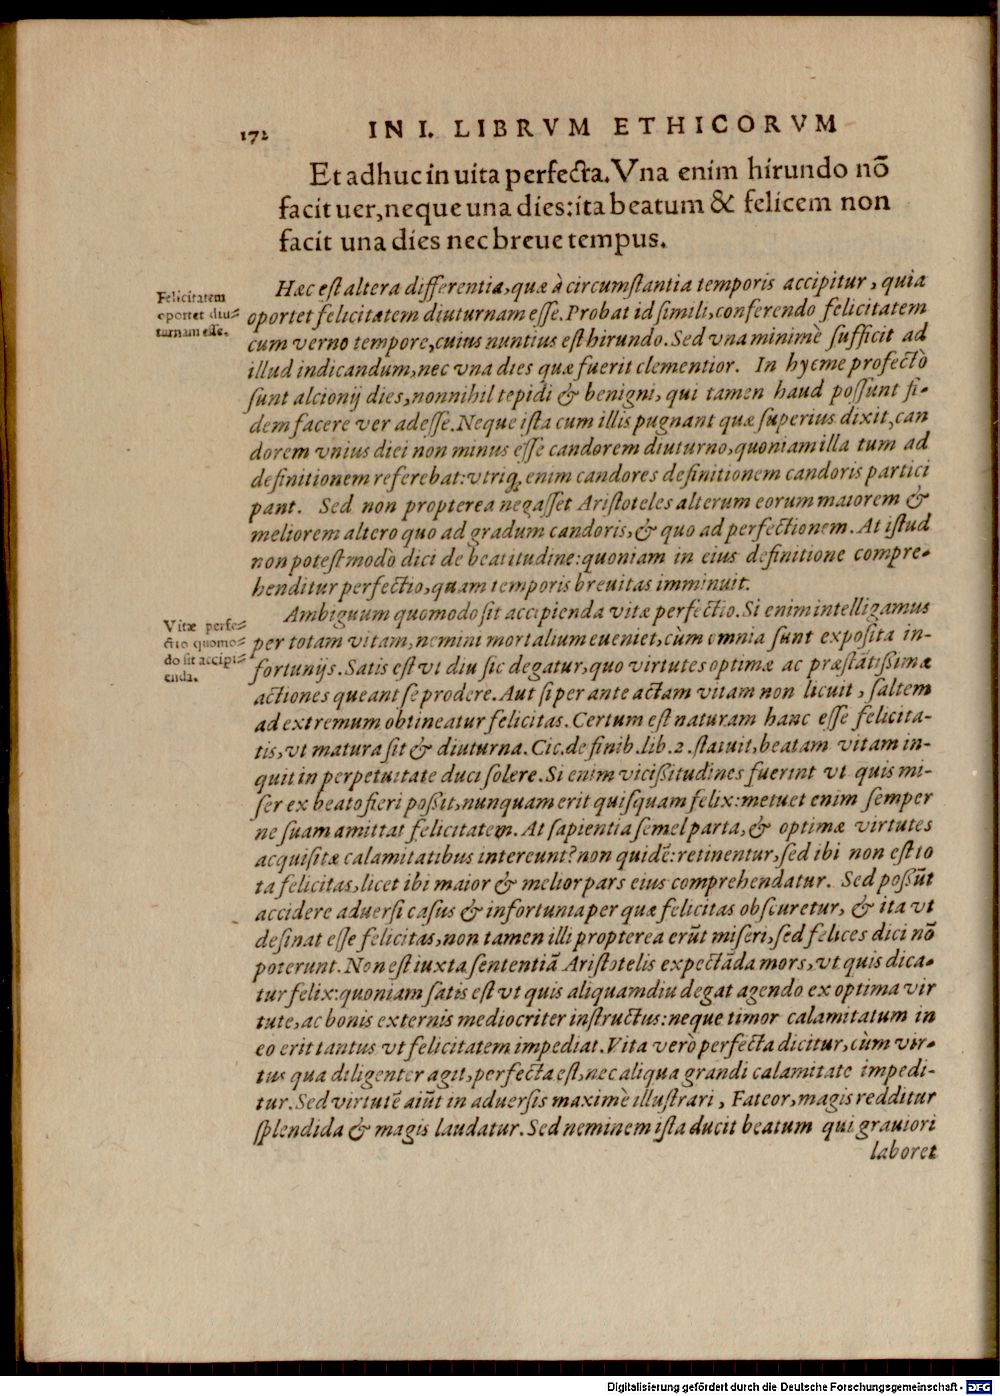 172
IN I. LIBRVM ETHICORVM
Et adhuc in uita perfecta. Vna enim hirundo nõ
facit uer, neque una dies: ita beatum & felicem non
facit una dies nec breue tempus.
Felicitatem
oportet diu⸗
turnam esse.
Hæc est altera differentia, quæ à circumstantia temporis accipitur, quia
oportet felicitatem diuturnam esse. Probat id simili, conferendo felicitatem
cum verno tempore, cuius nuntius est hirundo. Sed vna minimè sufficit ad
illud indicandum, nec vna dies quæ fuerit clementior. In hyeme profectò
sunt alcionij dies, nonnihil tepidi & benigni, qui tamen haud possunt fi-
dem facere ver adesse. Neque ista cum illis pugnant quæ superius dixit, can
dorem vnius diei non minus esse candorem diuturno, quoniam illa tum ad
definitionem referebat: vtriq; enim candores definitionem candoris partici
pant. Sed non propterea negasset Aristoteles alterum eorum maiorem &
meliorem altero quo ad gradum candoris, & quo ad perfectionem. At istud
non potest modò dici de beatitudine: quoniam in eius definitione compre-
henditur perfectio, quam temporis breuitas imminuit.
Vitæ perfe⸗
ctio quomo⸗
do sit accipi⸗
enda.
Ambiguum quomodo sit accipienda vitæ perfectio. Si enim intelligamus
per totam vitam, nemini mortalium eueniet, cùm omnia sunt exposita in-
fortunijs. Satis est vt diu sic degatur, quo virtutes optimæ ac præstãtissimæ
actiones queant se prodere. Aut si per ante actam vitam non licuit, saltem
ad extremum obtineatur felicitas. Certum est naturam hanc esse felicita-
tis, vt matura sit & diuturna. Cic. de finib. lib. 2. statuit, beatam vitam in-
quit in perpetuitate duci solere. Si enim vicissitudines fuerint vt quis mi-
ser ex beato fieri possit, nunquam erit quisquam felix: metuet enim semper
ne suam amittat felicitatem. At sapientia semel parta, & optimæ virtutes
acquisitæ calamitatibus intereunt? non quidẽ: retinentur, sed ibi non est to
ta felicitas, licet ibi maior & melior pars eius comprehendatur. Sed possũt
accidere aduersi casus & infortunia per quæ felicitas obscuretur, & ita vt
desinat esse felicitas, non tamen illi propterea erũt miseri, sed felices dici nõ
poterunt. Non est iuxta sententiã Aristotelis expectãda mors, vt quis dica-
tur felix: quoniam satis est vt quis aliquamdiu degat agendo ex optima vir
tute, ac bonis externis mediocriter instructus: neque timor calamitatum in
eo erit tantus vt felicitatem impediat. Vita verò perfecta dicitur, cùm vir-
tus qua diligenter agit, perfecta est, nec aliqua grandi calamitate impedi-
tur. Sed virtutẽ aiũt in aduersis maximè illustrari, Fateor, magis redditur
splendida & magis laudatur. Sed neminem ista ducit beatum qui grauiori
laboret
Digitalisierung gefördert durch die Deutsche Forschungsgemeinschaft - DFG